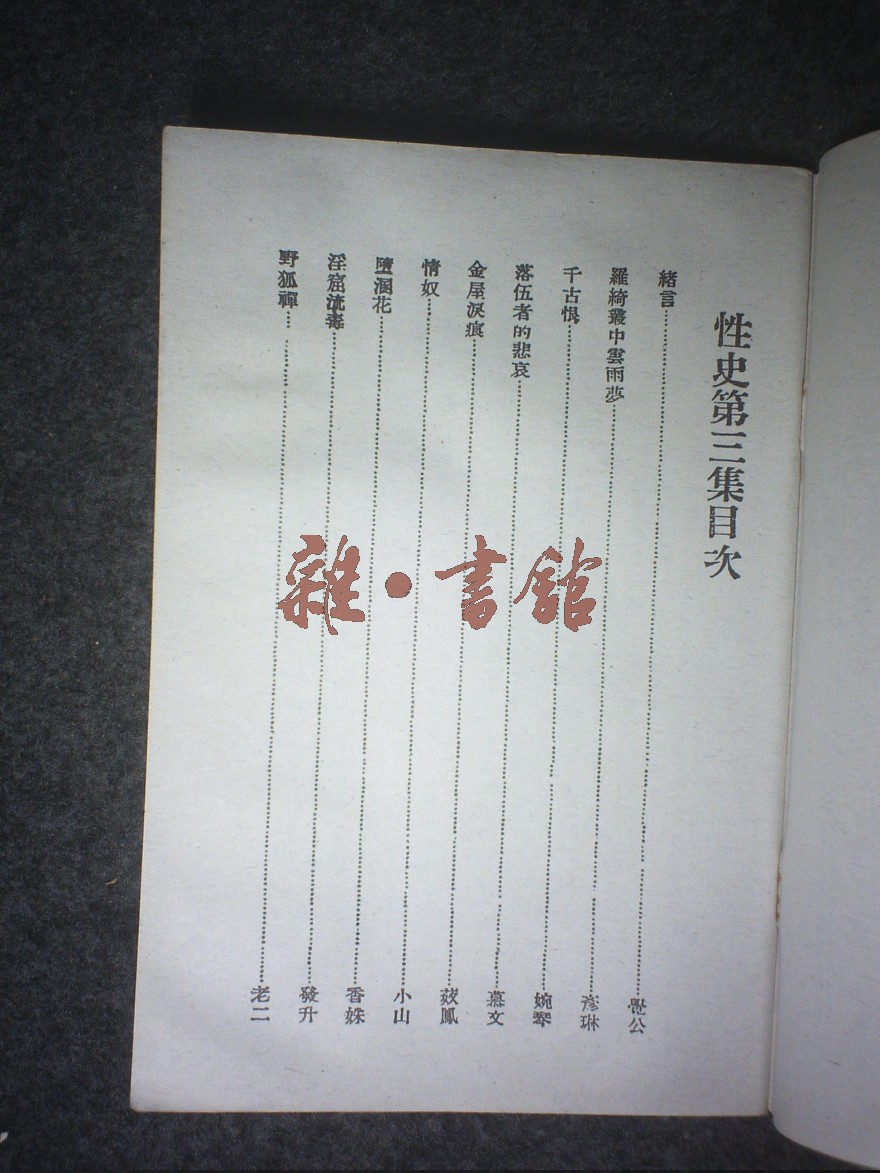 性史第三集目次
緒言……覺公
羅綺叢中雲雨夢……彥琳
千古恨……婉琴
落伍者的悲哀……慕文
金屋淚痕……鳳
情奴……小山
墮溷花……香姝
淫窟流毒……發升
野狐禪……老二
雜·書館